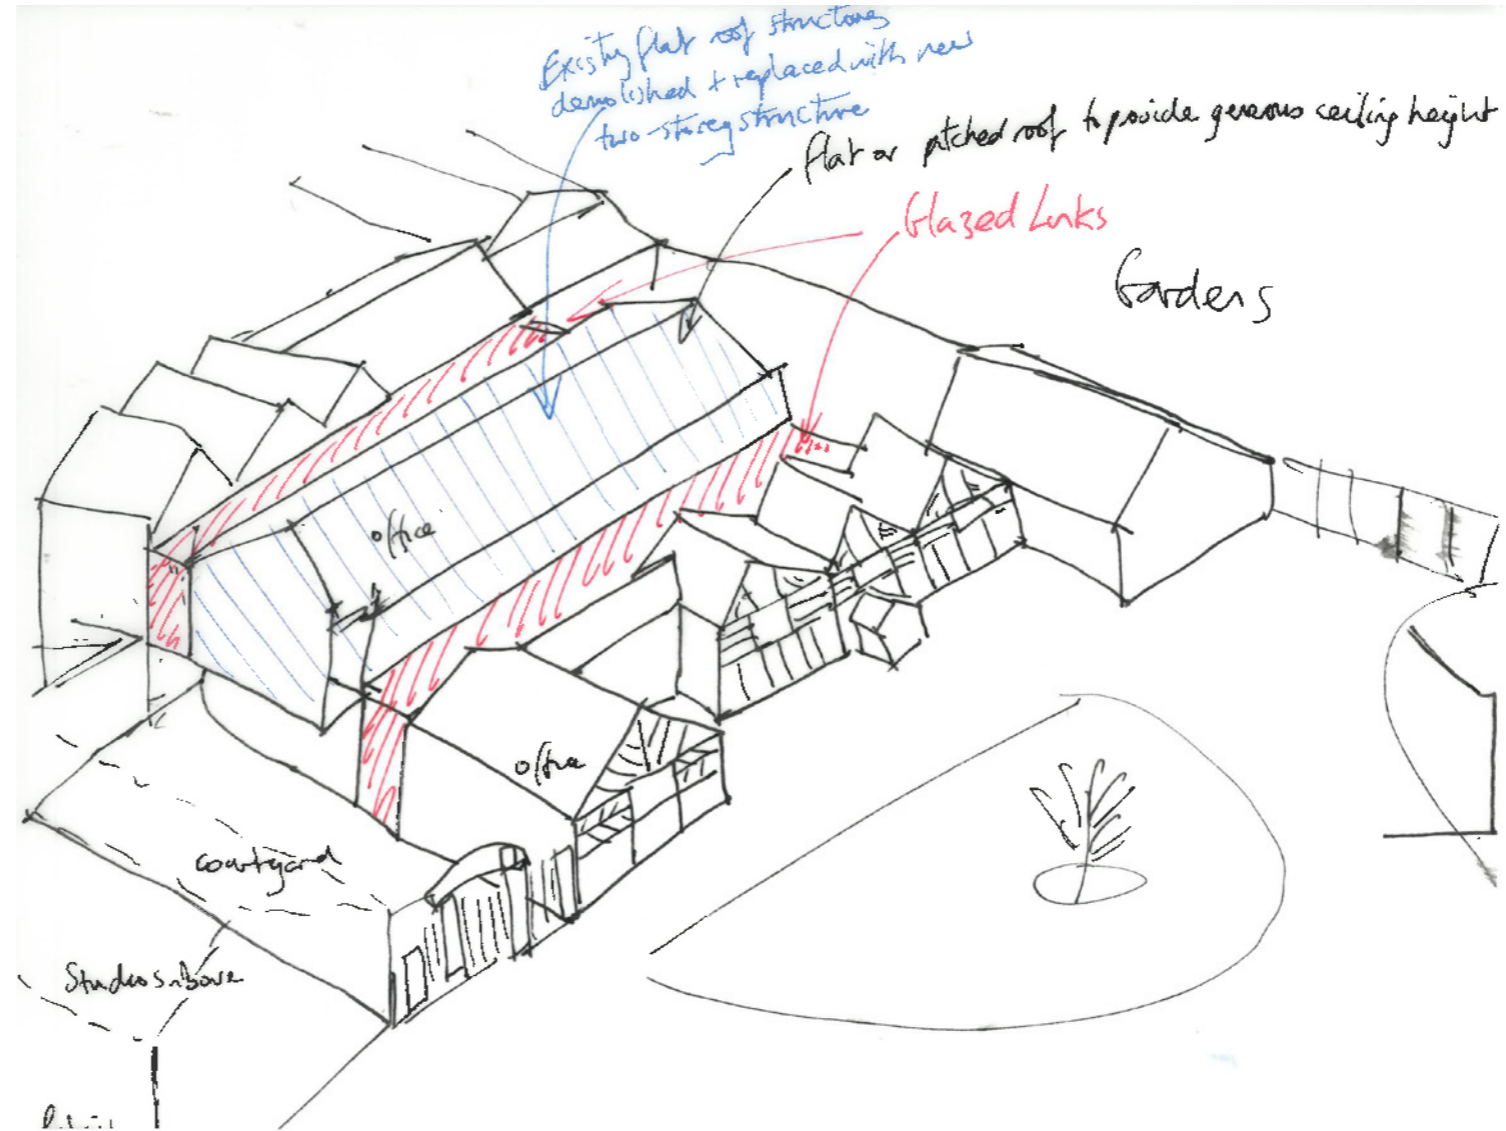 Existing flat roof structures
demolished + replaced with new
two-storey structure
flat or pitched roof to provide generous ceiling height
Glazed Links
Gardens
office
office
courtyard
Studios above